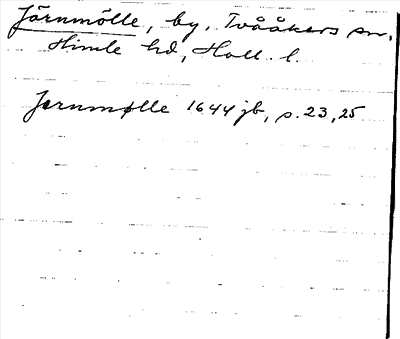 Järnmölle, by, Tvååkers sn,
Himle hd, Hall. l.
Jernmølle 1644 jb, s. 23, 25